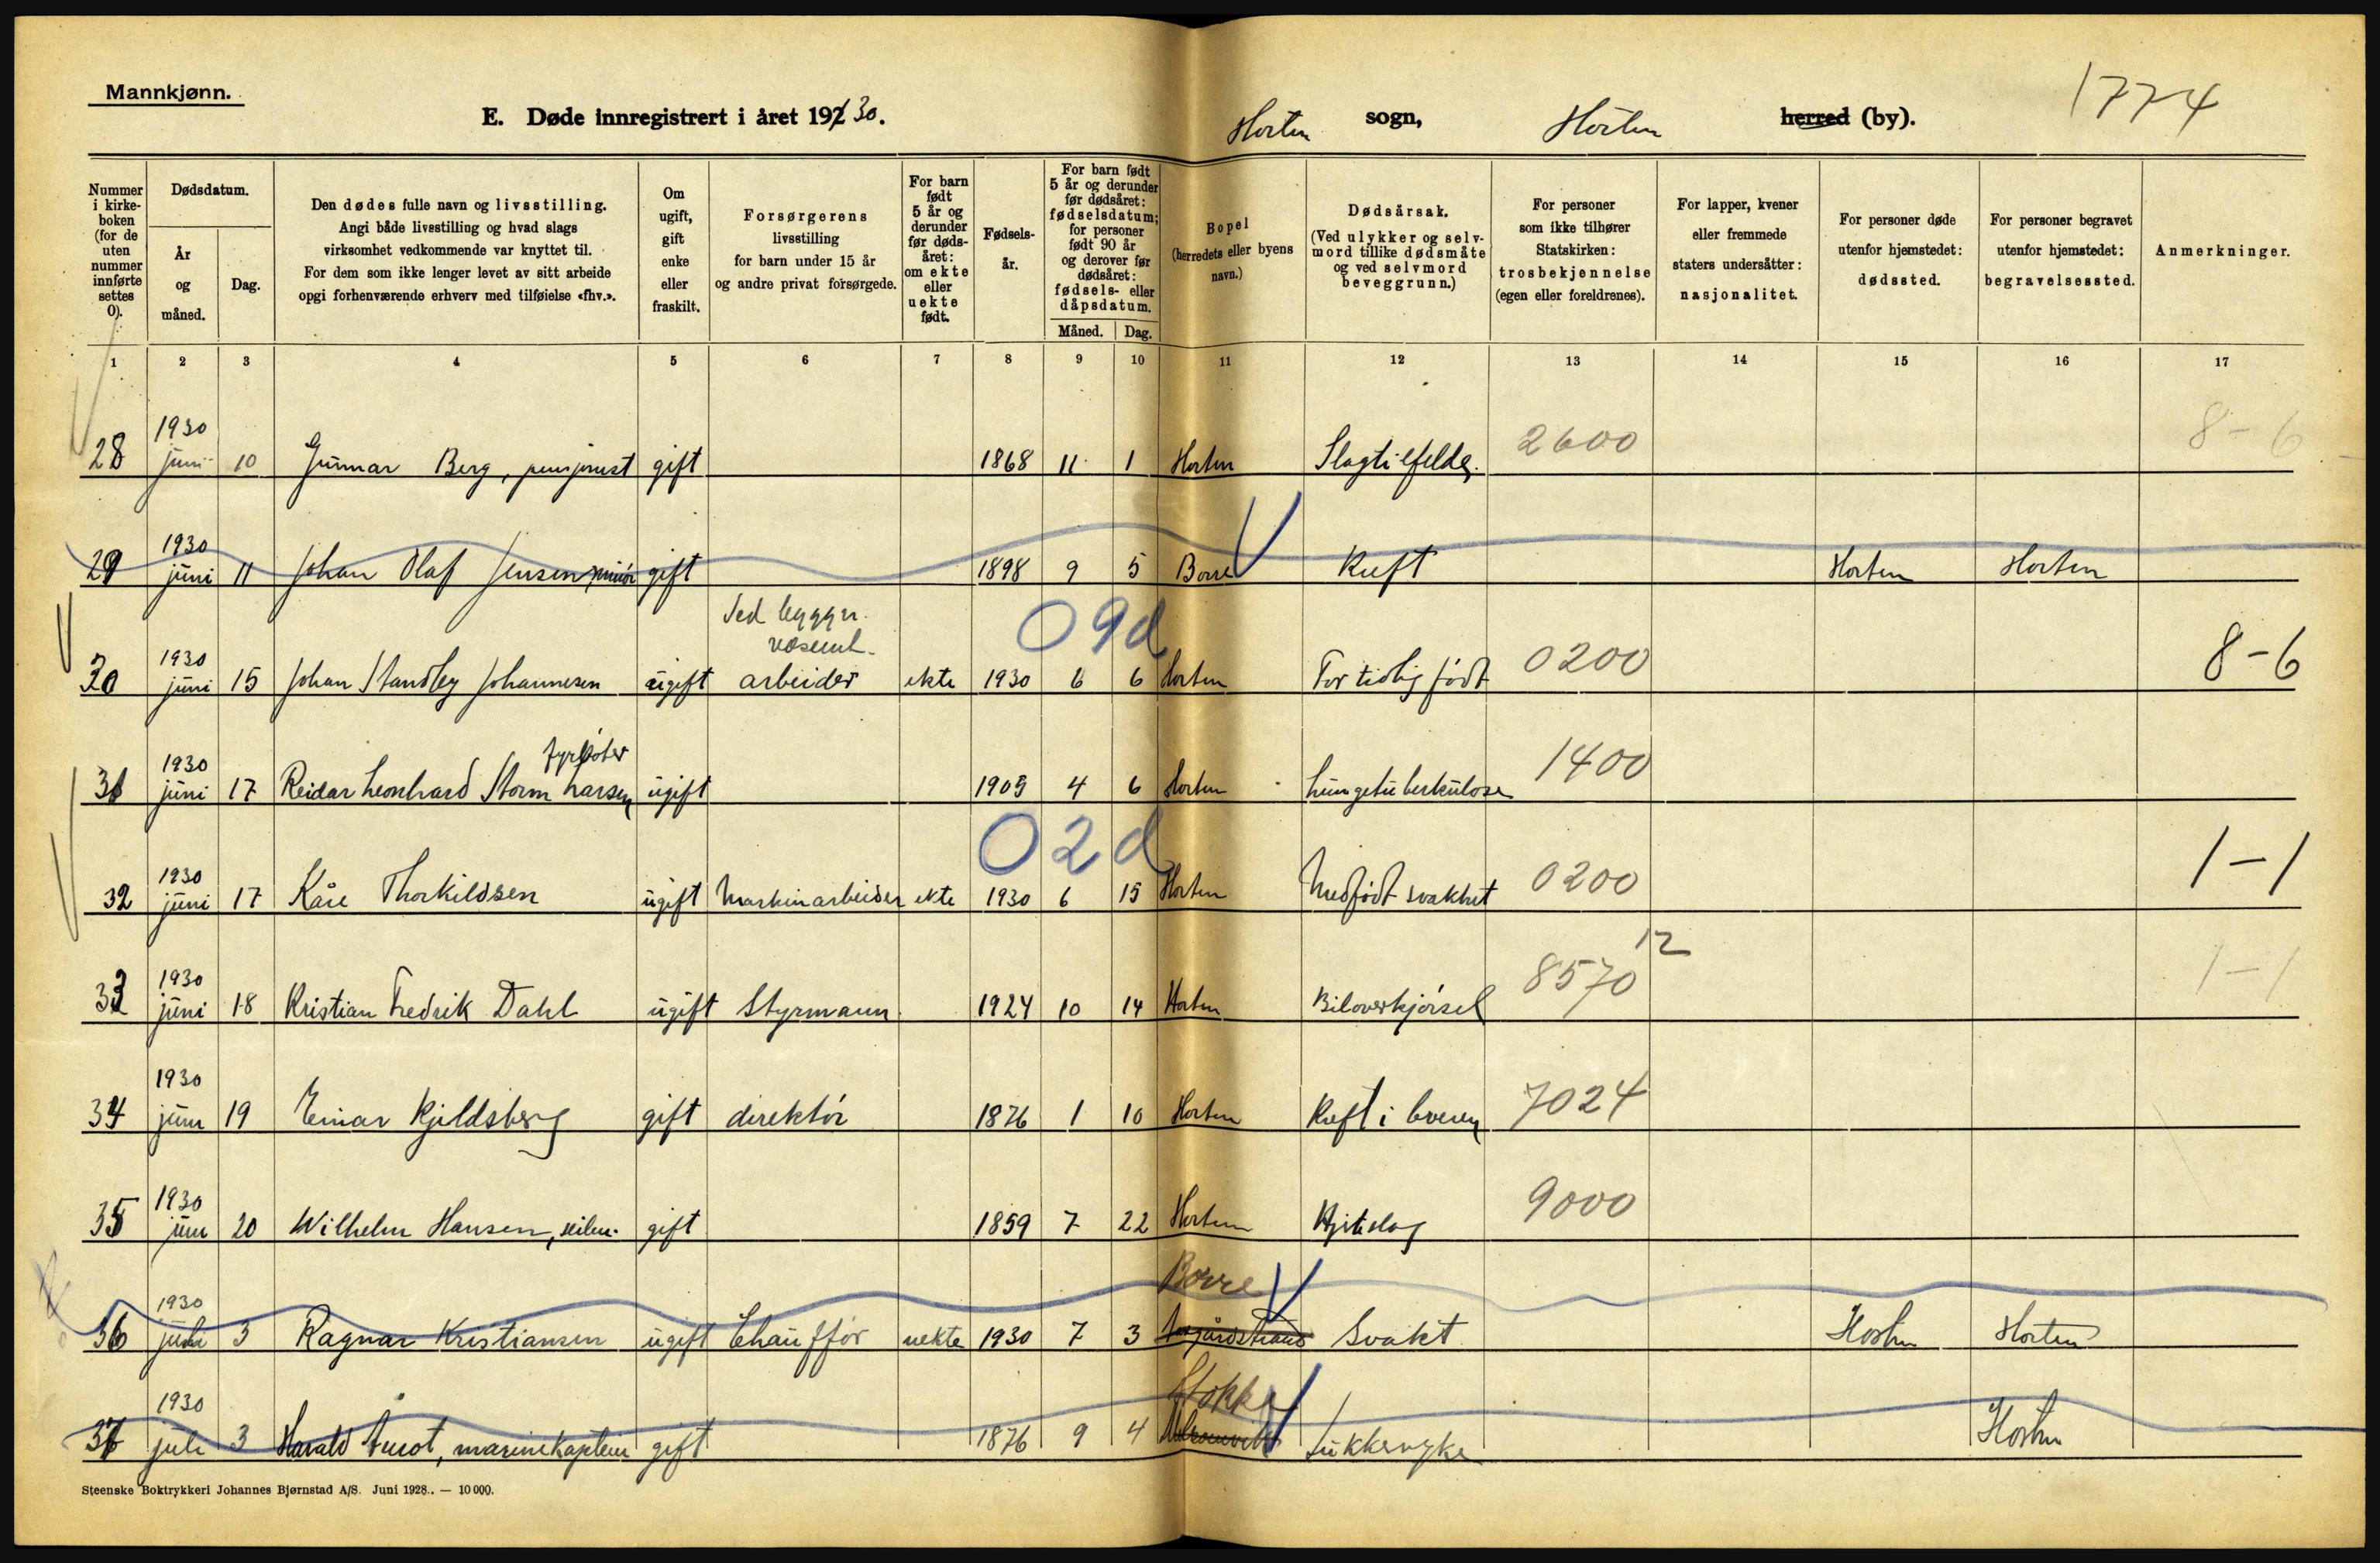 Mannkjønn.
E. Døde innregistrert i året 19230.
Horten sogn, Horten herred (by).
1774
Nummer i kirke-boken (for de uten nummer innførte settes 0).
Dødsdatum.
År og måned.
Dag.
Den dødes fulle navn og livsstilling.
Angi både livsstilling og hvad slags
virksomhet vedkommende var knyttet til.
For dem som ikke lenger levet av sitt arbeide
opgi forhenværende erhverv med tilføielse «fhv.».
Om ugift, gift enke eller fraskilt.
Forsørgerens
livsstilling
for barn under 15 år
og andre privat forsørgede.
For barn født 5 år og derunder før døds-året: om ekte eller uekte født.
Fødsels-år.
For barn født 5 år og derunder før dødsåret: fødselsdatum; for personer født 90 år og derover før dødsåret: fødsels- eller dåpsdatum.
Måned. Dag.
Bopel
(herredets eller byens navn.)
Dødsårsak.
(Ved ulykker og selv-mord tillike dødsmåte og ved selvmord beveggrunn.)
For personer som ikke tilhører Statskirken: trosbekjennelse (egen eller foreldrenes).
For lapper, kvener eller fremmede staters undersåtter: nasjonalitet.
For personer døde utenfor hjemstedet: dødssted.
For personer begravet utenfor hjemstedet: begravelsessted.
Anmerkninger.
1 2 3 4 5 6 7 8 9 10 11 12 13 14 15 16 17
28 1930 juni 10 Gunnar Berg, pensjonist gift 1868 11 1 Horten Slagtilfelde. 2600 8-6
29 1930 juni 11 Johan Olaf Jensen, gift 1898 9 5 Borre Kreft Horten Horten
30 1930 juni 15 Johan Standley Johannesen ugift arbeider ekte 1930 6 6 Horten For tidlig født 0200 8-6
09d
31 1930 juni 17 Reidar Leonhard Storm Larsen fyrbøter ugift 1909 4 6 Horten Lungetuberkulose 1400
02d
32 1930 juni 17 Kåre Thorkildsen ugift Maskinarbeider ekte 1930 6 15 Horten Medfødt svakhet 0200 1-1
33 1930 juni 18 Kristian Fredrik Dahl ugift Styrmann 1924 10 14 Horten Biloverkjørsel 8570 12 1-1
34 1930 juni 19 Einar Kjeldsberg gift direktør 1876 1 10 Horten Kreft i 7024
35 1930 juni 20 Wilhelm Hansen, gift 1859 7 22 Horten Hjerteslag 9000
36 1930 juli 3 Ragnar Kristiansen ugift Chauffør uekte 1930 7 3 Borre Åsgårdstrand Svakt Horten Horten
37 1930 juli 3 Harald marinekaptein gift 1876 9 4 Stokke Horten
Steenske Boktrykkeri Johannes Bjørnstad A/S. Juni 1928. — 10 000.